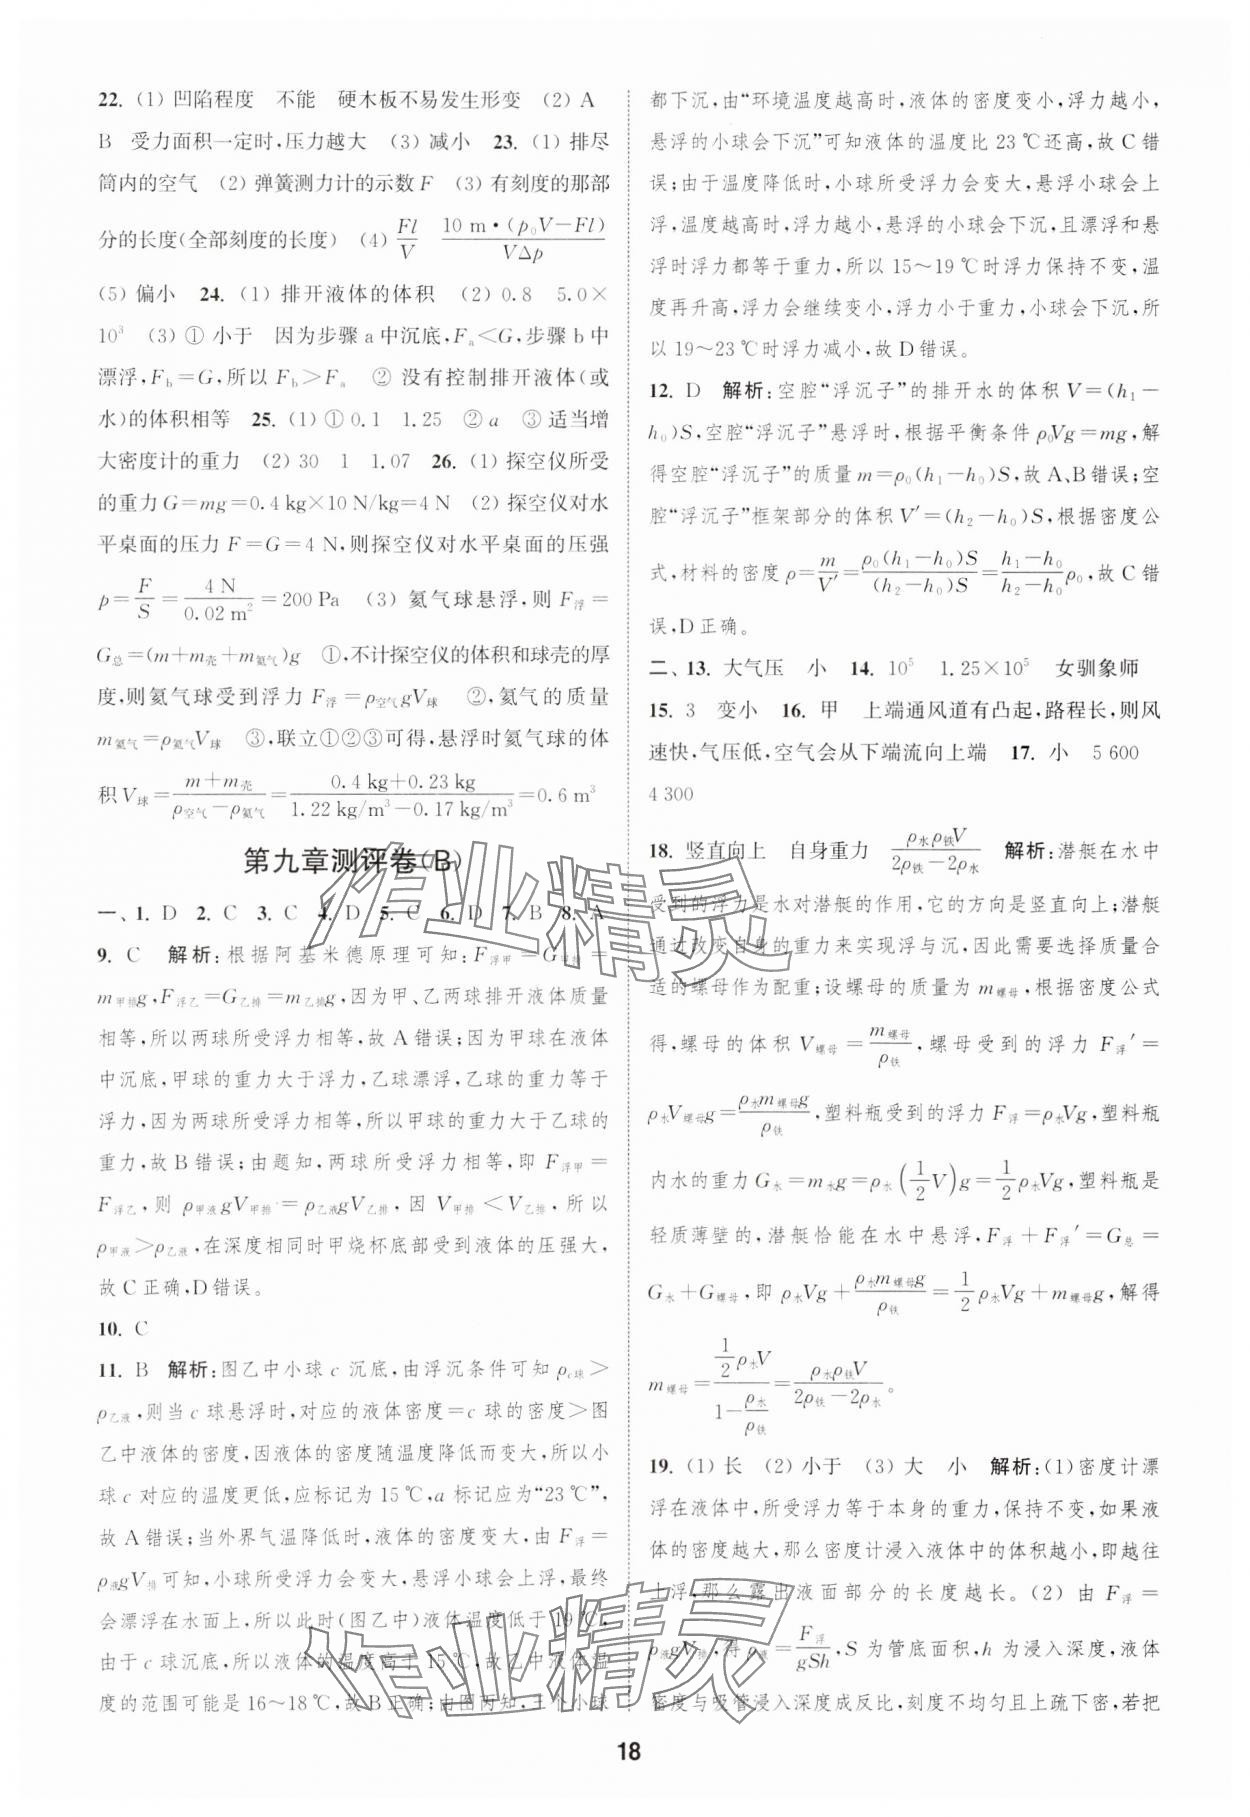 22. (1) 凹陷程度　不能　硬木板不易发生形变　(2) A
B　受力面积一定时,压力越大　(3) 减小　23. (1) 排尽
筒内的空气　(2) 弹簧测力计的示数 F　(3) 有刻度的那部
分的长度(全部刻度的长度)　(4) Fl/V　10 m·(p₀V−Fl)/VΔp
(5) 偏小　24. (1) 排开液体的体积　(2) 0.8　5.0×
10³　(3) ① 小于　因为步骤 a 中沉底,Fₐ<G,步骤 b 中
漂浮,F_b=G,所以 F_b>Fₐ　② 没有控制排开液体(或
水)的体积相等　25. (1) ① 0.1　1.25　② a　③ 适当增
大密度计的重力　(2) 30　1　1.07　26. (1) 探空仪所受
的重力 G=mg=0.4 kg×10 N/kg=4 N　(2) 探空仪对水
平桌面的压力 F=G=4 N,则探空仪对水平桌面的压强
p=F/S=4 N/0.02 m²=200 Pa　(3) 氦气球悬浮,则 F浮=
G总=(m+m壳+m氦气)g　①,不计探空仪的体积和球壳的厚
度,则氦气球受到浮力 F浮=ρ空气gV球　②,氦气的质量
m氦气=ρ氦气V球　③,联立①②③可得,悬浮时氦气球的体
积 V球=(m+m壳)/(ρ空气−ρ氦气)=(0.4 kg+0.23 kg)/(1.22 kg/m³−0.17 kg/m³)=0.6 m³
第九章测评卷(B)
一、1. D　2. C　3. C　4. D　5. C　6. D　7. B　8. A
9. C　解析:根据阿基米德原理可知:F浮甲=G甲排=
m甲排g,F浮乙=G乙排=m乙排g,因为甲、乙两球排开液体质量
相等,所以两球所受浮力相等,故 A 错误;因为甲球在液体
中沉底,甲球的重力大于浮力,乙球漂浮,乙球的重力等于
浮力,因为两球所受浮力相等,所以甲球的重力大于乙球的
重力,故 B 错误;由题知,两球所受浮力相等,即 F浮甲=
F浮乙,则 ρ甲液gV甲排=ρ乙液gV乙排,因 V甲排<V乙排,所以
ρ甲液>ρ乙液,在深度相同时甲烧杯底部受到液体的压强大,
故 C 正确,D 错误。
10. C
11. B　解析:图乙中小球 c 沉底,由浮沉条件可知 ρc球>
ρ乙液,则当 c 球悬浮时,对应的液体密度=c 球的密度>图
乙中液体的密度,因液体的密度随温度降低而变大,所以小
球 c 对应的温度更低,应标记为 15 ℃,a 标记应为“23 ℃”,
故 A 错误;当外界气温降低时,液体的密度变大,由 F浮=
ρ液gV排可知,小球所受浮力会变大,悬浮小球会上浮,最终
会漂浮在水面上,所以此时(图乙中)液体温度低于 19 ℃,
由于 c 球沉底,所以液体的温度高于 15 ℃,故乙中液体温
度的范围可能是 16～18 ℃,故 B 正确;由图丙知,三个小球
都下沉,由“环境温度越高时,液体的密度变小,浮力越小,
悬浮的小球会下沉”可知液体的温度比 23 ℃还高,故 C 错
误;由于温度降低时,小球所受浮力会变大,悬浮小球会上
浮,温度越高时,浮力越小,悬浮的小球会下沉,且漂浮和悬
浮时浮力都等于重力,所以 15～19 ℃时浮力保持不变,温
度再升高,浮力会继续变小,浮力小于重力,小球会下沉,所
以 19～23 ℃时浮力减小,故 D 错误。
12. D　解析:空腔“浮沉子”的排开水的体积 V=(h₁−
h₀)S,空腔“浮沉子”悬浮时,根据平衡条件 ρ₀Vg=mg,解
得空腔“浮沉子”的质量 m=ρ₀(h₁−h₀)S,故 A、B 错误;空
腔“浮沉子”框架部分的体积 V′=(h₂−h₀)S,根据密度公
式,材料的密度 ρ=m/V′=ρ₀(h₁−h₀)S/(h₂−h₀)S=(h₁−h₀)/(h₂−h₀)ρ₀,故 C 错
误,D 正确。
二、13. 大气压　小　14. 10⁵　1.25×10⁵　女驯象师
15. 3　变小　16. 甲　上端通风道有凸起,路程长,则风
速快,气压低,空气会从下端流向上端　17. 小　5 600
4 300
18. 竖直向上　自身重力　ρ水ρ铁V/(2ρ铁−2ρ水)　解析:潜艇在水中
受到的浮力是水对潜艇的作用,它的方向是竖直向上;潜艇
通过改变自身的重力来实现浮与沉,因此需要选择质量合
适的螺母作为配重;设螺母的质量为 m螺母,根据密度公式
得,螺母的体积 V螺母=m螺母/ρ铁,螺母受到的浮力 F浮′=
ρ水V螺母g=ρ水m螺母g/ρ铁,塑料瓶受到的浮力 F浮=ρ水Vg,塑料瓶
内水的重力 G水=m水g=ρ水(1/2 V)g=1/2 ρ水Vg,塑料瓶是
轻质薄壁的,潜艇恰能在水中悬浮,F浮+F浮′=G总=
G水+G螺母,即 ρ水Vg+ρ水m螺母g/ρ铁=1/2 ρ水Vg+m螺母g,解得
m螺母=(1/2 ρ水V)/(1−ρ水/ρ铁)=ρ水ρ铁V/(2ρ铁−2ρ水)。
19. (1) 长　(2) 小于　(3) 大　小　解析:(1)密度计漂
浮在液体中,所受浮力等于本身的重力,保持不变,如果液
体的密度越大,那么密度计浸入液体中的体积越小,即越往
上浮,那么露出液面部分的长度越长。(2) 由 F浮=
ρ液gV排,得 ρ液=F浮/gSh,S 为管底面积,h 为浸入深度,液体
密度与吸管浸入深度成反比,刻度不均匀且上疏下密,若把
作业精灵
作业精灵
18